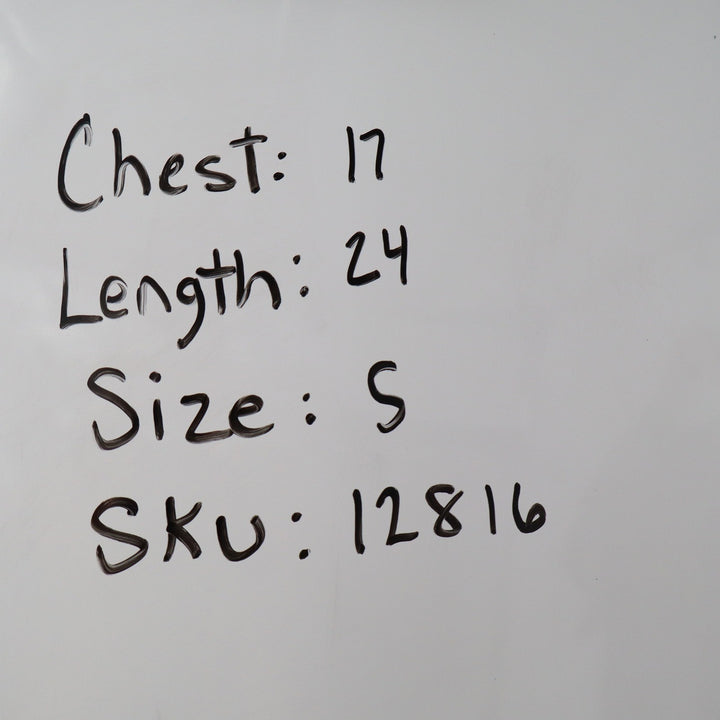 Chest: 17
Length: 24
Size: S
SKU: 12816